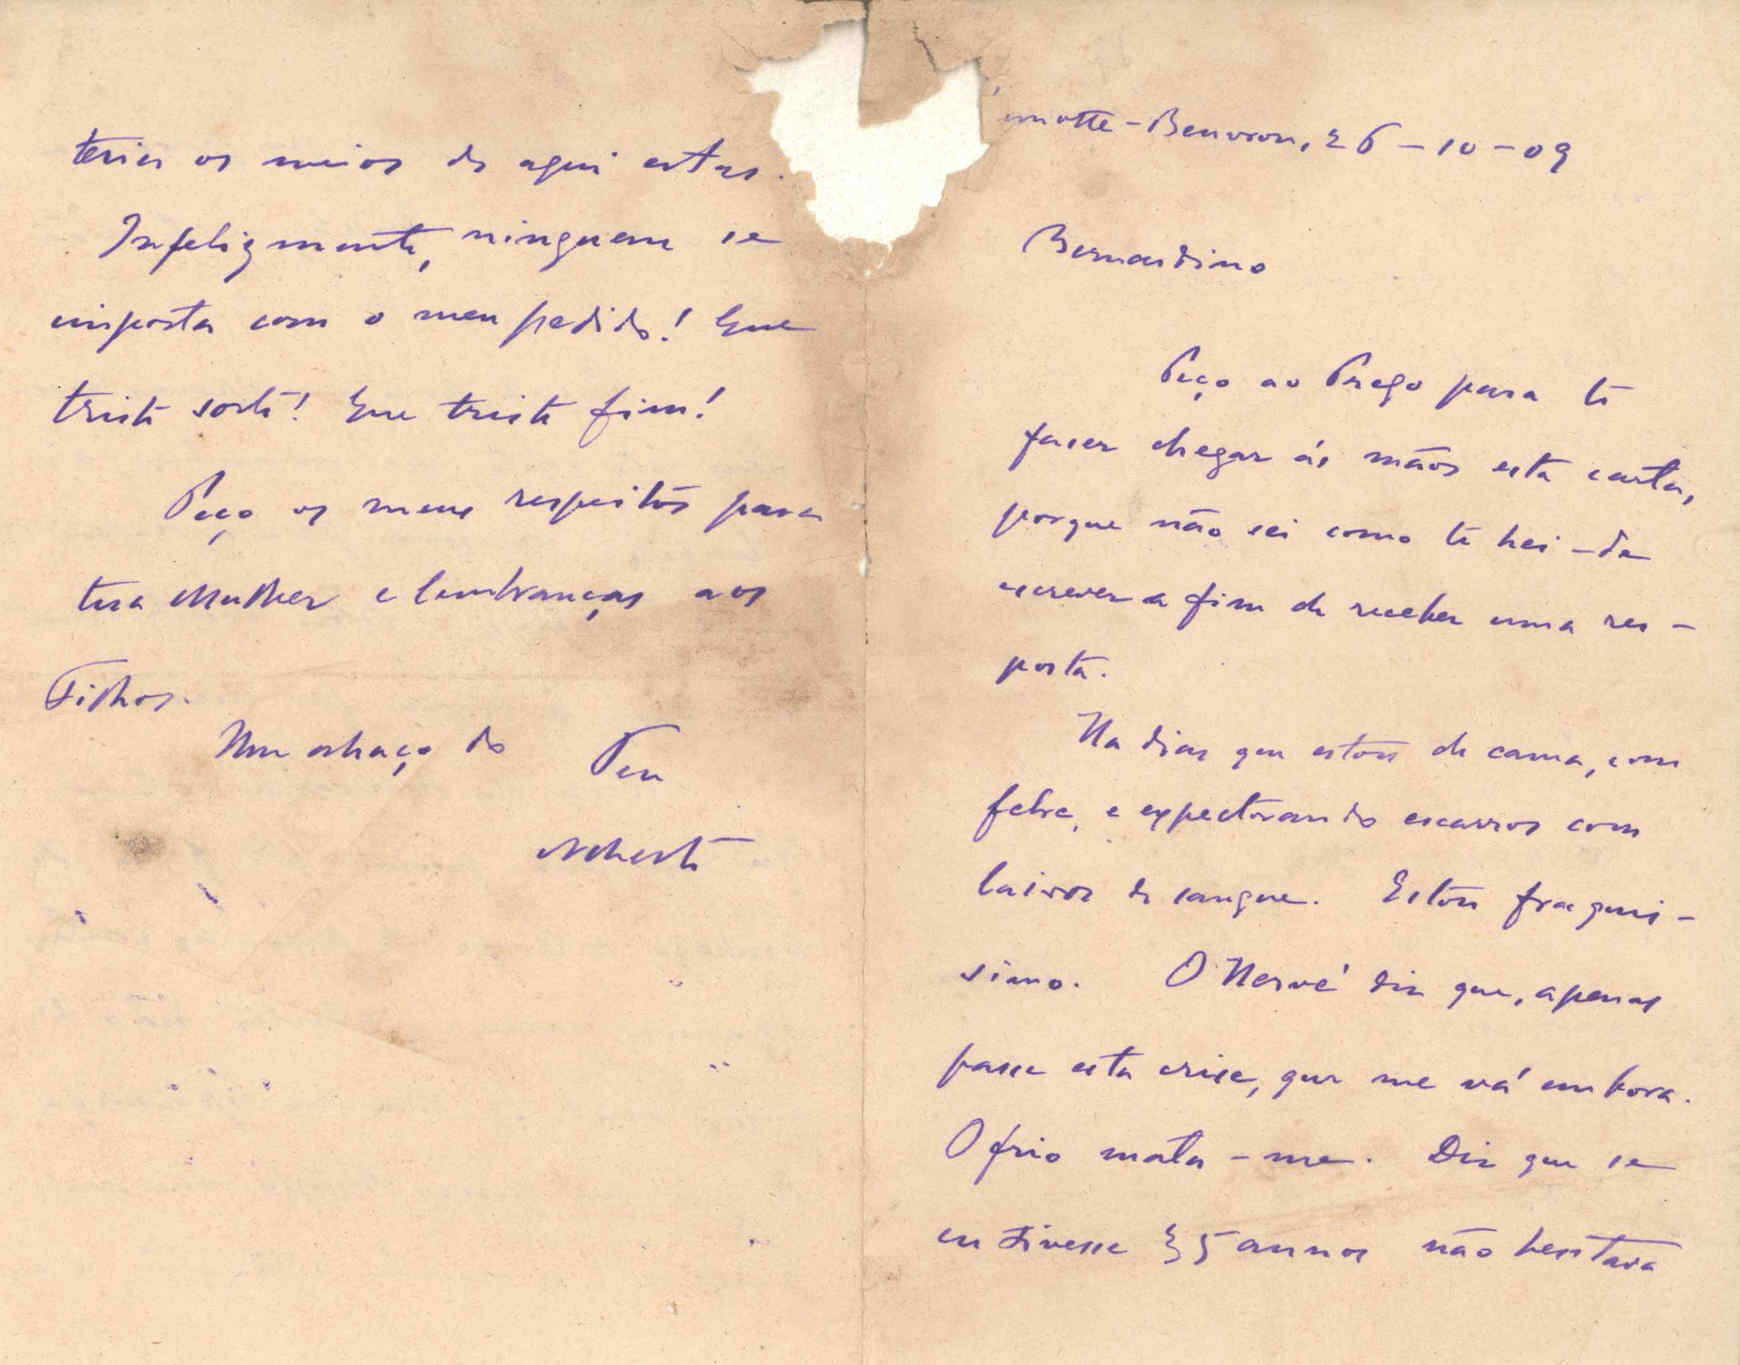 motte-Beuvron, 26-10-09
Bernardino
Peço ao Prego para te
fazer chegar ás mãos esta carta,
porque não sei como te hei-de
escrever a fim de receber uma res-
posta.
Ha dias que estou de cama, com
febre, e expectorando escarros com
laivos de sangue. Estou fraquis-
simo. O Hervé diz que, apenas
passe esta crise, que me vá embora.
O frio mata-me. Diz que se
eu tivesse 35 annos não hesitava
teria os meios de aqui estar.
Infelizmente, ninguem se
importa com o meu pedido! Que
triste sorte! Que triste fim!
Peço os meus respeitos para
tua Mulher e lembranças aos
Filhos.
Um abraço do Teu